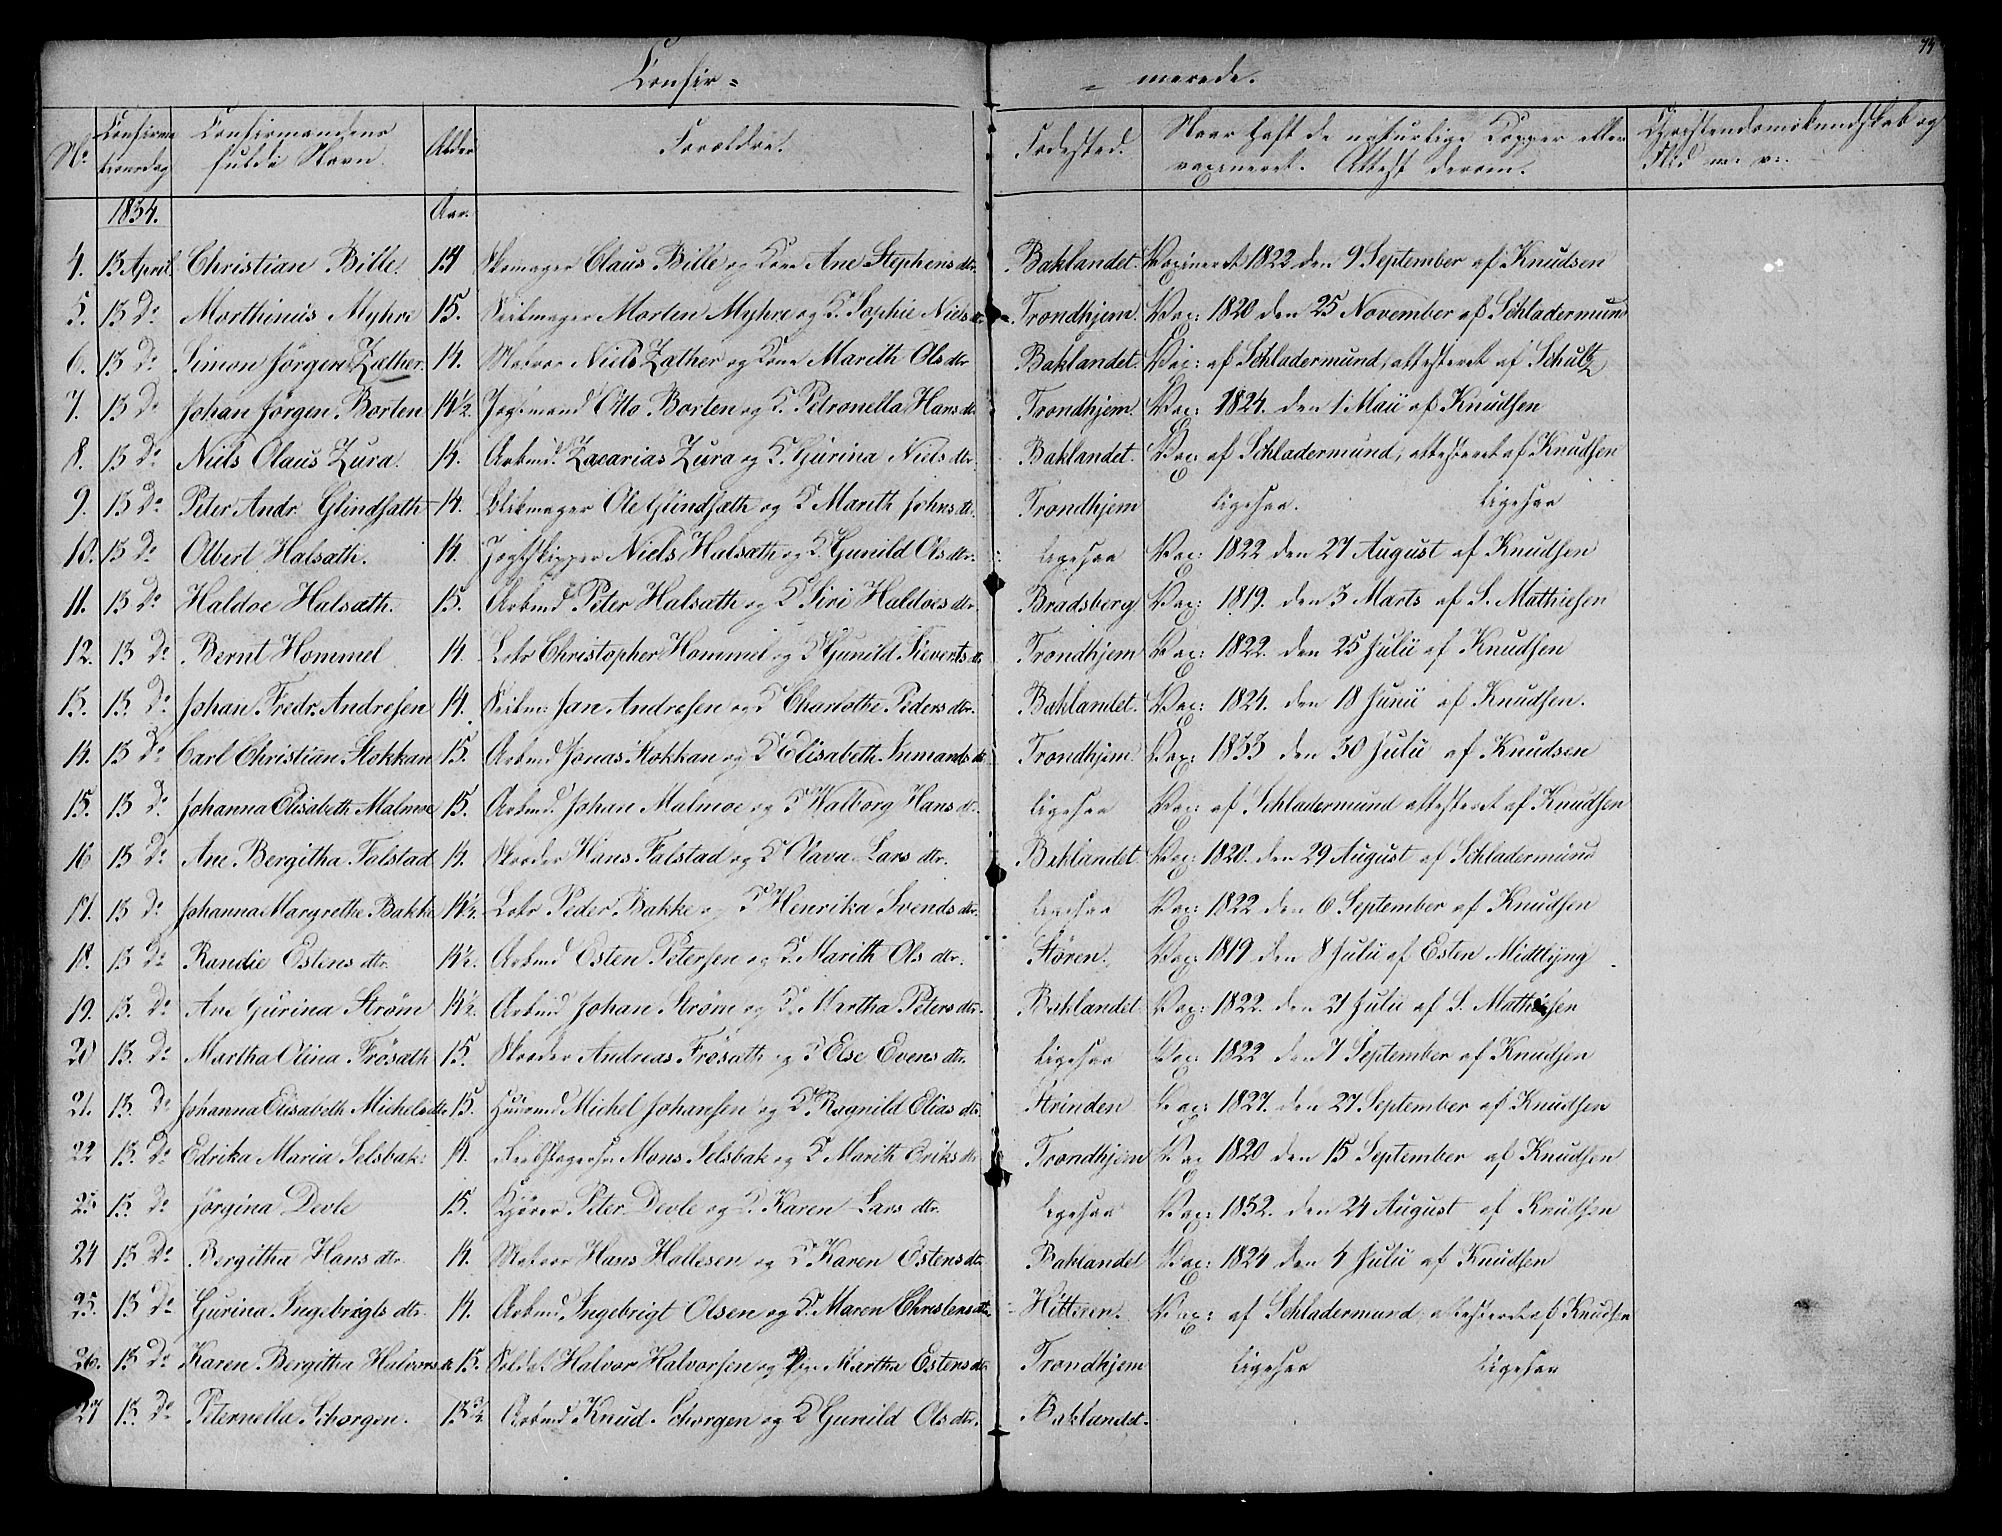 Confir= =merede.
No Confirmationsdag Confirmandens fulde Navn. Alder Forældre. Fødested. Naar haft de naturlige Kopper eller vaxineret. Attest derom. Christendomskundskab og Flid m: v:
1834. Aar.
4. 13 April. Christian Bille. 14 Skomager Claus Bille og Kone Ane Stephens dtr. Baklandet. Vaxineret 1822 den 9 September af Knudsen
5. 13 Do Morthinus Myhre 15. Seilmager Morten Myhre og K. Sophie Niels dtr. Trondhjem. Vax: 1820 den 25 November af Schladermund
6. 13 Do Simon Jørgen Zæther. 14. Niels Zæther og Kone Marith Ols dtr Baklandet. Vax: af Schladermund, attesteret af Schultz
7. 13 Do Johan Jørgen Borten 14½. Jegtmand Otto Borten og K. Petronella Hans dtr Trondhjem. Vax: 1824. den 1 Maii af Knudsen
8. 13 Do Niels Olaus Zura. 14. Arbmd. Zacarias Zura og K. Gjurina Niels dtr. Baklandet. Vax: af Schladermund, attesteret af Knudsen
9. 13 Do Peter Andr. Glindsath 14. Blikmager Ole Glindsath og K Marith Johns dtr. Trondhjem ligesaa. ligesaa
10. 13 Do Olbert Halsæth. 14. Jegtskipper Niels Halsæth og K. Gunild Ols dtr. ligesaa Vax: 1822 den 27 August af Knudsen
11. 13 Do Haldoe Halsæth. 15. Arbmd Peter Halsæth og K Siri Haldoes dtr. Bradsberg Vax: 1819. den 3 Marts af S. Mathiesen
12. 13 Do Bernt Hommel 14. Christopher Hommel og K Gunild Sieverts dtr Trondhjem Vax: 1822. den 25 Julii af Knudsen
13. 13. Do Johan Fredr. Andresen 14. Seilm: Jan Andresen og K Charlothe Peders dtr. Baklandet. Vax: 1824. den 18 Junii af Knudsen.
14. 13 Do Carl Christian Stokkan 15. Arbmd Jonas Stokkan og K Elisabeth dtr Trondhjem Vax: 1833 den 30 Julii af Knudsen
15. 13 Do Johanna Elisabeth Malmoe 15. Arbmd. Johan Malmoe og K Walborg Hans dtr. ligesaa Vax: af Schladermund attesteret af Knudsen
16 13 Do Ane Bergitha Falstad 14. Skreder Hans Falstad og K Olava Lars dtr. Baklandet. Vax: 1820. den 29 August af Schladermund
17. 13 Do Johanna Margrethe Bakke 14½. Peder Bakke og K Henrika Svends dtr. ligesaa Vax: 1822 den 6 September af Knudsen
18. 13 Do Randie Estens dtr. 14½. Arbmd Esten Petersen og K. Marith Ols dtr. Støren. Vax: 1819 den 8 Julii af Esten Midtlyng
19. 13. Do Ane Gurina Strøm 14½. Arbmd Johan Strøm og K. Martha Peters dtr. Baklandet Vax: 1822. den 21 Julii af S. Mathiesen
20 13. Do Martha Olina Frösæth 15. Skreder Andreas Frösæth og K Else Evens dtr. ligesaa Vax: 1822 den 7 September af Knudsen
21. 13. Do Johanna Elisabeth Michels dtr 15. Huusmd Michel Johansen og K. Ragnild Elias dtr. Strinden Vax: 1827. den 27 September af Knudsen
22 13. Do Edrika Maria Selsbak. 14. Mons Selsbak og K Marith Eriks dtr Trondhjem Vax 1820 den 15 September af Knudsen
23 13. Do Jørgina Devle 15. Kjører Peter Devle og K. Karen Lars dtr. ligesaa Vax: 1832. den 24 August af Knudsen
24 13 Do Bergitha Hans dtr. 14. Hans Hallesen og K Karen Estens dtr. Baklandet Vax: 1824 den 4 Julii af Knudsen
25. 13 Do Gurina Ingebrigts dtr. 14. Arbmd Ingebrigt Olsen og K. Maren Christens dtr Hitteren. Vax: af Schladermund, attesteret af Knudsen
26. 13 Do Karen Bergitha Halvors dtr 15. Soldat Halvor Halvorsen og Martha Estens dtr Trondhjem ligesaa ligesaa
27 13. Do Peternella Schorgen. Arbmd Knud Schorgen og K Gunild Ols dtr. Baklandet.